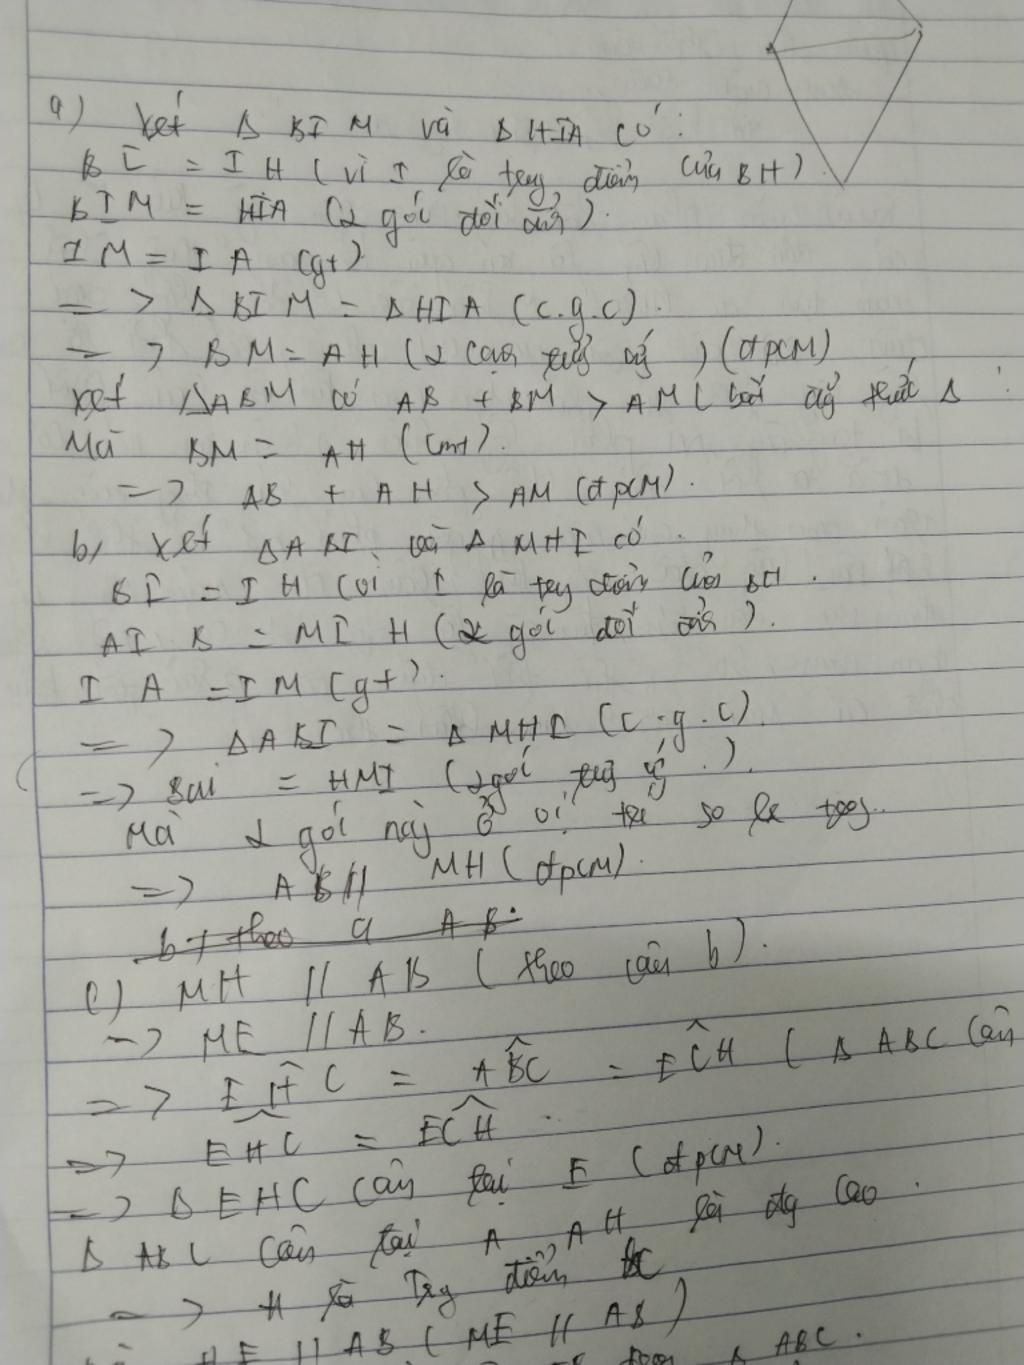 a) Xét Δ BIM và Δ HIA có:
BI = IH (vì I là trung điểm của BH)
BIM = HIA (2 góc đối đỉnh).
IM = IA (gt)
=> Δ BIM = Δ HIA (c.g.c).
=> BM = AH (2 cạnh tương ứng) (đpcm)
Xét ΔABM có AB + BM > AM (bất đẳng thức Δ
Mà BM = AH (cmt).
=> AB + AH > AM (đpcm).
b, Xét ΔABI và Δ MHI có
BI = IH (vì I là trung điểm của BH.
AIB = MIH (2 góc đối đỉnh).
IA = IM (gt).
=> ΔABI = Δ MHI (c.g.c).
=> BAI = HMI (2 góc tương ứng).
Mà 2 góc này ở vị trí so le trong.
=> AB // MH (đpcm).
b, theo a AB.
c) MH // AB (theo câu b).
=> ME // AB.
=> EHC = ABC = ECH (Δ ABC cân
=> EHC = ECH.
=> Δ EHC cân tại E (đpcm).
Δ ABC cân tại A, AH là đg cao.
=> H là trung điểm BC
HE // AB (ME // AB)
Δ ABC.